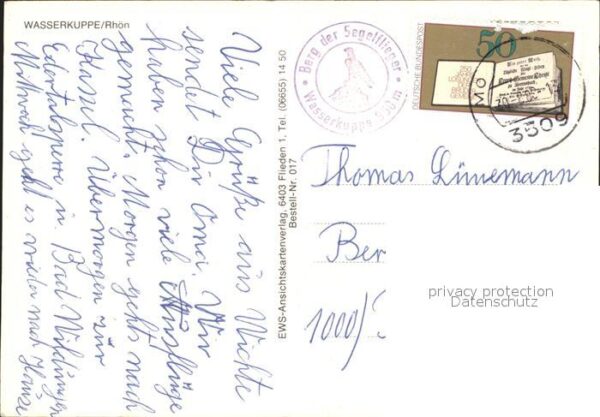 WASSERKUPPE/Rhön
Viele Grüße aus Wichte
sendet Dir Oma. Wir
haben schon viele Ausflüge
gemacht. Morgen gehts nach
Kassel. Übermorgen zur
Edertalsperre u. Bad Wildungen
Mittwoch geht es wieder nach Hause
EWS-Ansichtskartenverlag, 6403 Flieden 1, Tel. (06655) 14 50
Bestell-Nr. 017
Berg der Segelflieger
Wasserkuppe 950 m
DEUTSCHE BUNDESPOST
50
3509
Thomas Lünemann
Ber
1000/
privacy protection
Datenschutz